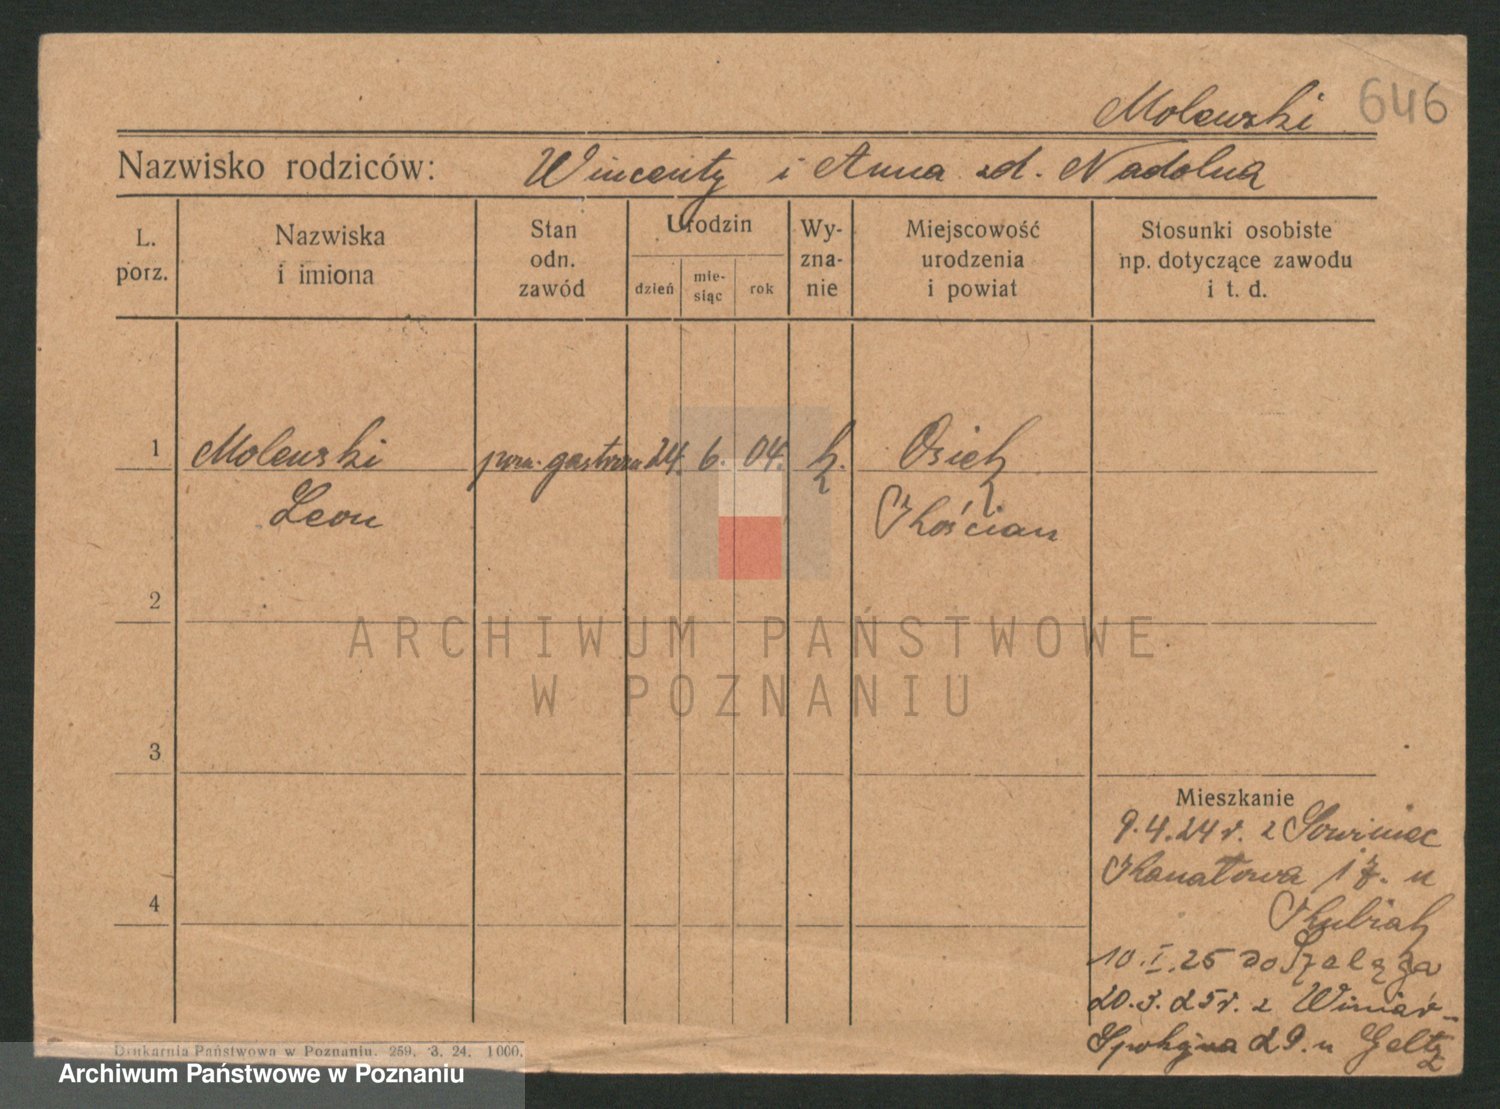 Molewski 646
Nazwisko rodziców: Wincenty i Anna zd. Nadolna
L. porz.
Nazwiska i imiona
Stan odn. zawód
Urodzin
dzień
mie-
siąc
rok
Wy-
zna-
nie
Miejscowość
urodzenia
i powiat
Stosunki osobiste
np. dotyczące zawodu
i t. d.
1 Molewski pom. gastron. 24. 6. 04. k. Osiek
Leon Kościan
2
ARCHIWUM PAŃSTWOWE
W POZNANIU
3
Mieszkanie
9.4.24 r. z Sowiniec
Kanałowa 17. u
4
Kubiak
10.I.25 do Szeląga
20.3.25 r. z Winiar-
Spokojna 29. u
Drukarnia Państwowa w Poznaniu. 259. 3. 24. 1000.
Archiwum Państwowe w Poznaniu